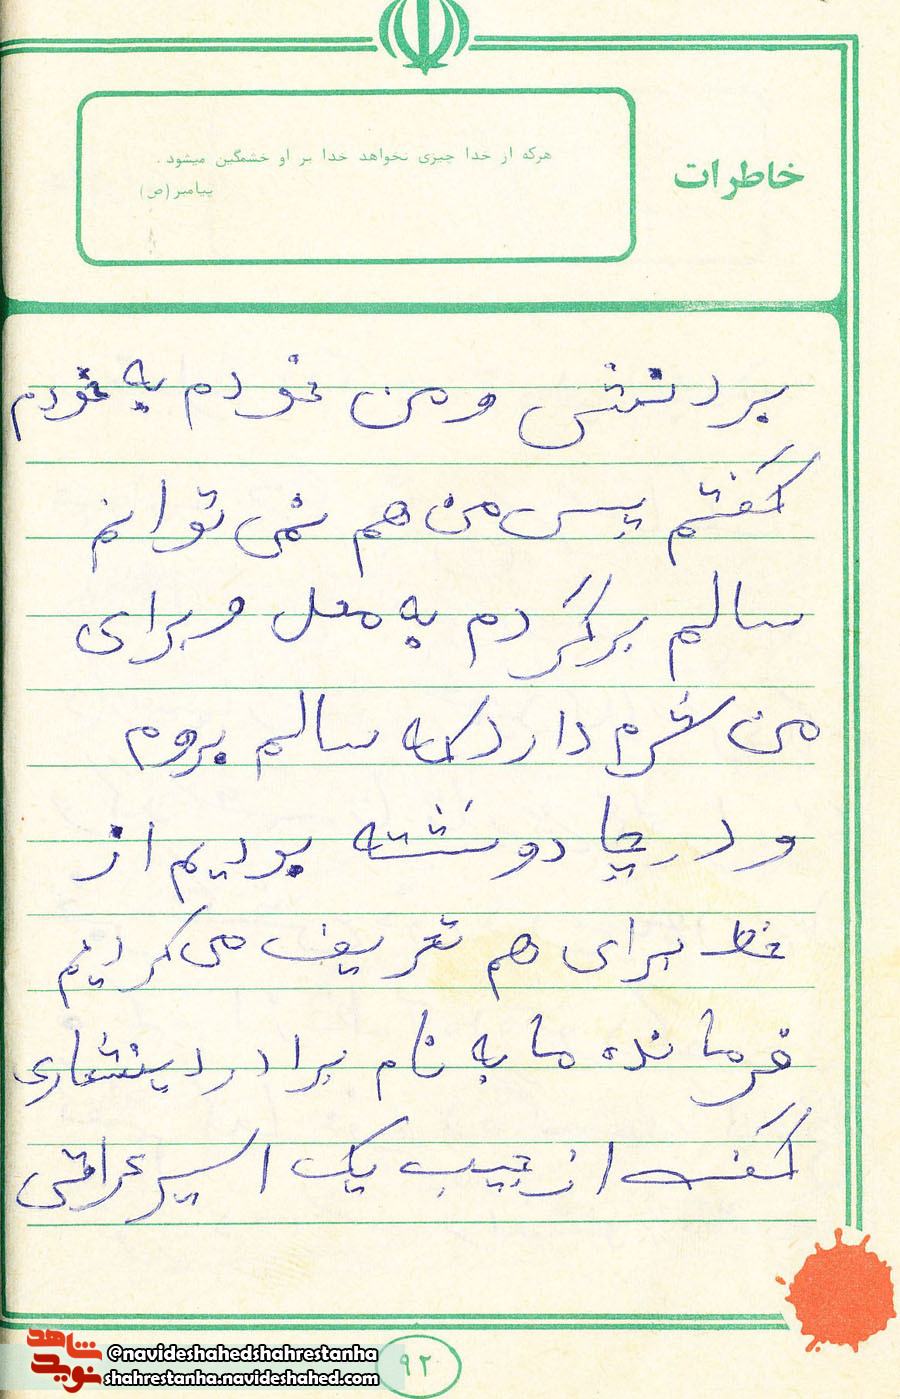 خاطرات
هرکه از خدا چیزی نخواهد خدا بر او خشمگین میشود.
پیامبر (ص)
بردنش و من خودم به خودم
گفتم پس من هم نمی توانم
سالم برگردم به محل و برای
من شرم دارد که سالم بروم
و در چادر نشسته بودیم از
خط برای هم تعریف می کردیم
فرمانده ما به نام برادر
گفت از جیب یک اسیر عراقی
شاهد
نوید
@navideshahedshahrestanha
shahrestanha.navideshahed.com
۹۲